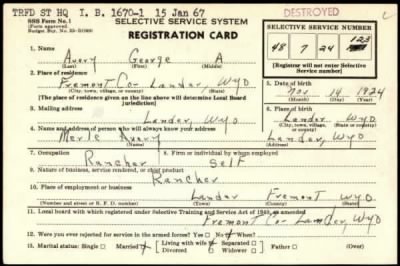 TRFD ST HQ I. B. 1670-1 15 Jan 67
DESTROYED
SSS Form No. 1
(Form approved.
SELECTIVE SERVICE SYSTEM
REGISTRATION CARD
SELECTIVE SERVICE NUMBER
48 7 24 123
[Registrar will not enter Selective
Service number]
1. Name
Avery George A
2. Place of residence
Fremont Co. Lander, Wyo
(City, town, village, or county) (State)
[The place of residence given above will determine Local Board
jurisdiction]
3. Mailing address
Lander, Wyo
4. Name and address of person who will always know your address
Merle Avery Lander, Wyo
5. Date of birth
Nov 14 1924
(Month) (Day) (Year)
6. Place of birth
Lander Wyo
7. Occupation
Rancher
8. Firm or individual by whom employed
Self
9. Nature of business, service rendered, or chief product
Rancher
10. Place of employment or business
Lander Fremont Wyo
(Number and street or R. F. D. number) (City) (County) (State)
11. Local board with which registered under Selective Training and Service Act of 1940, as amended
Fremont Co Lander, Wyo
12. Were you ever rejected for service in the armed forces? Yes No
13. Marital status: Single Married Living with wife Separated Father
Widower Divorced (Over)